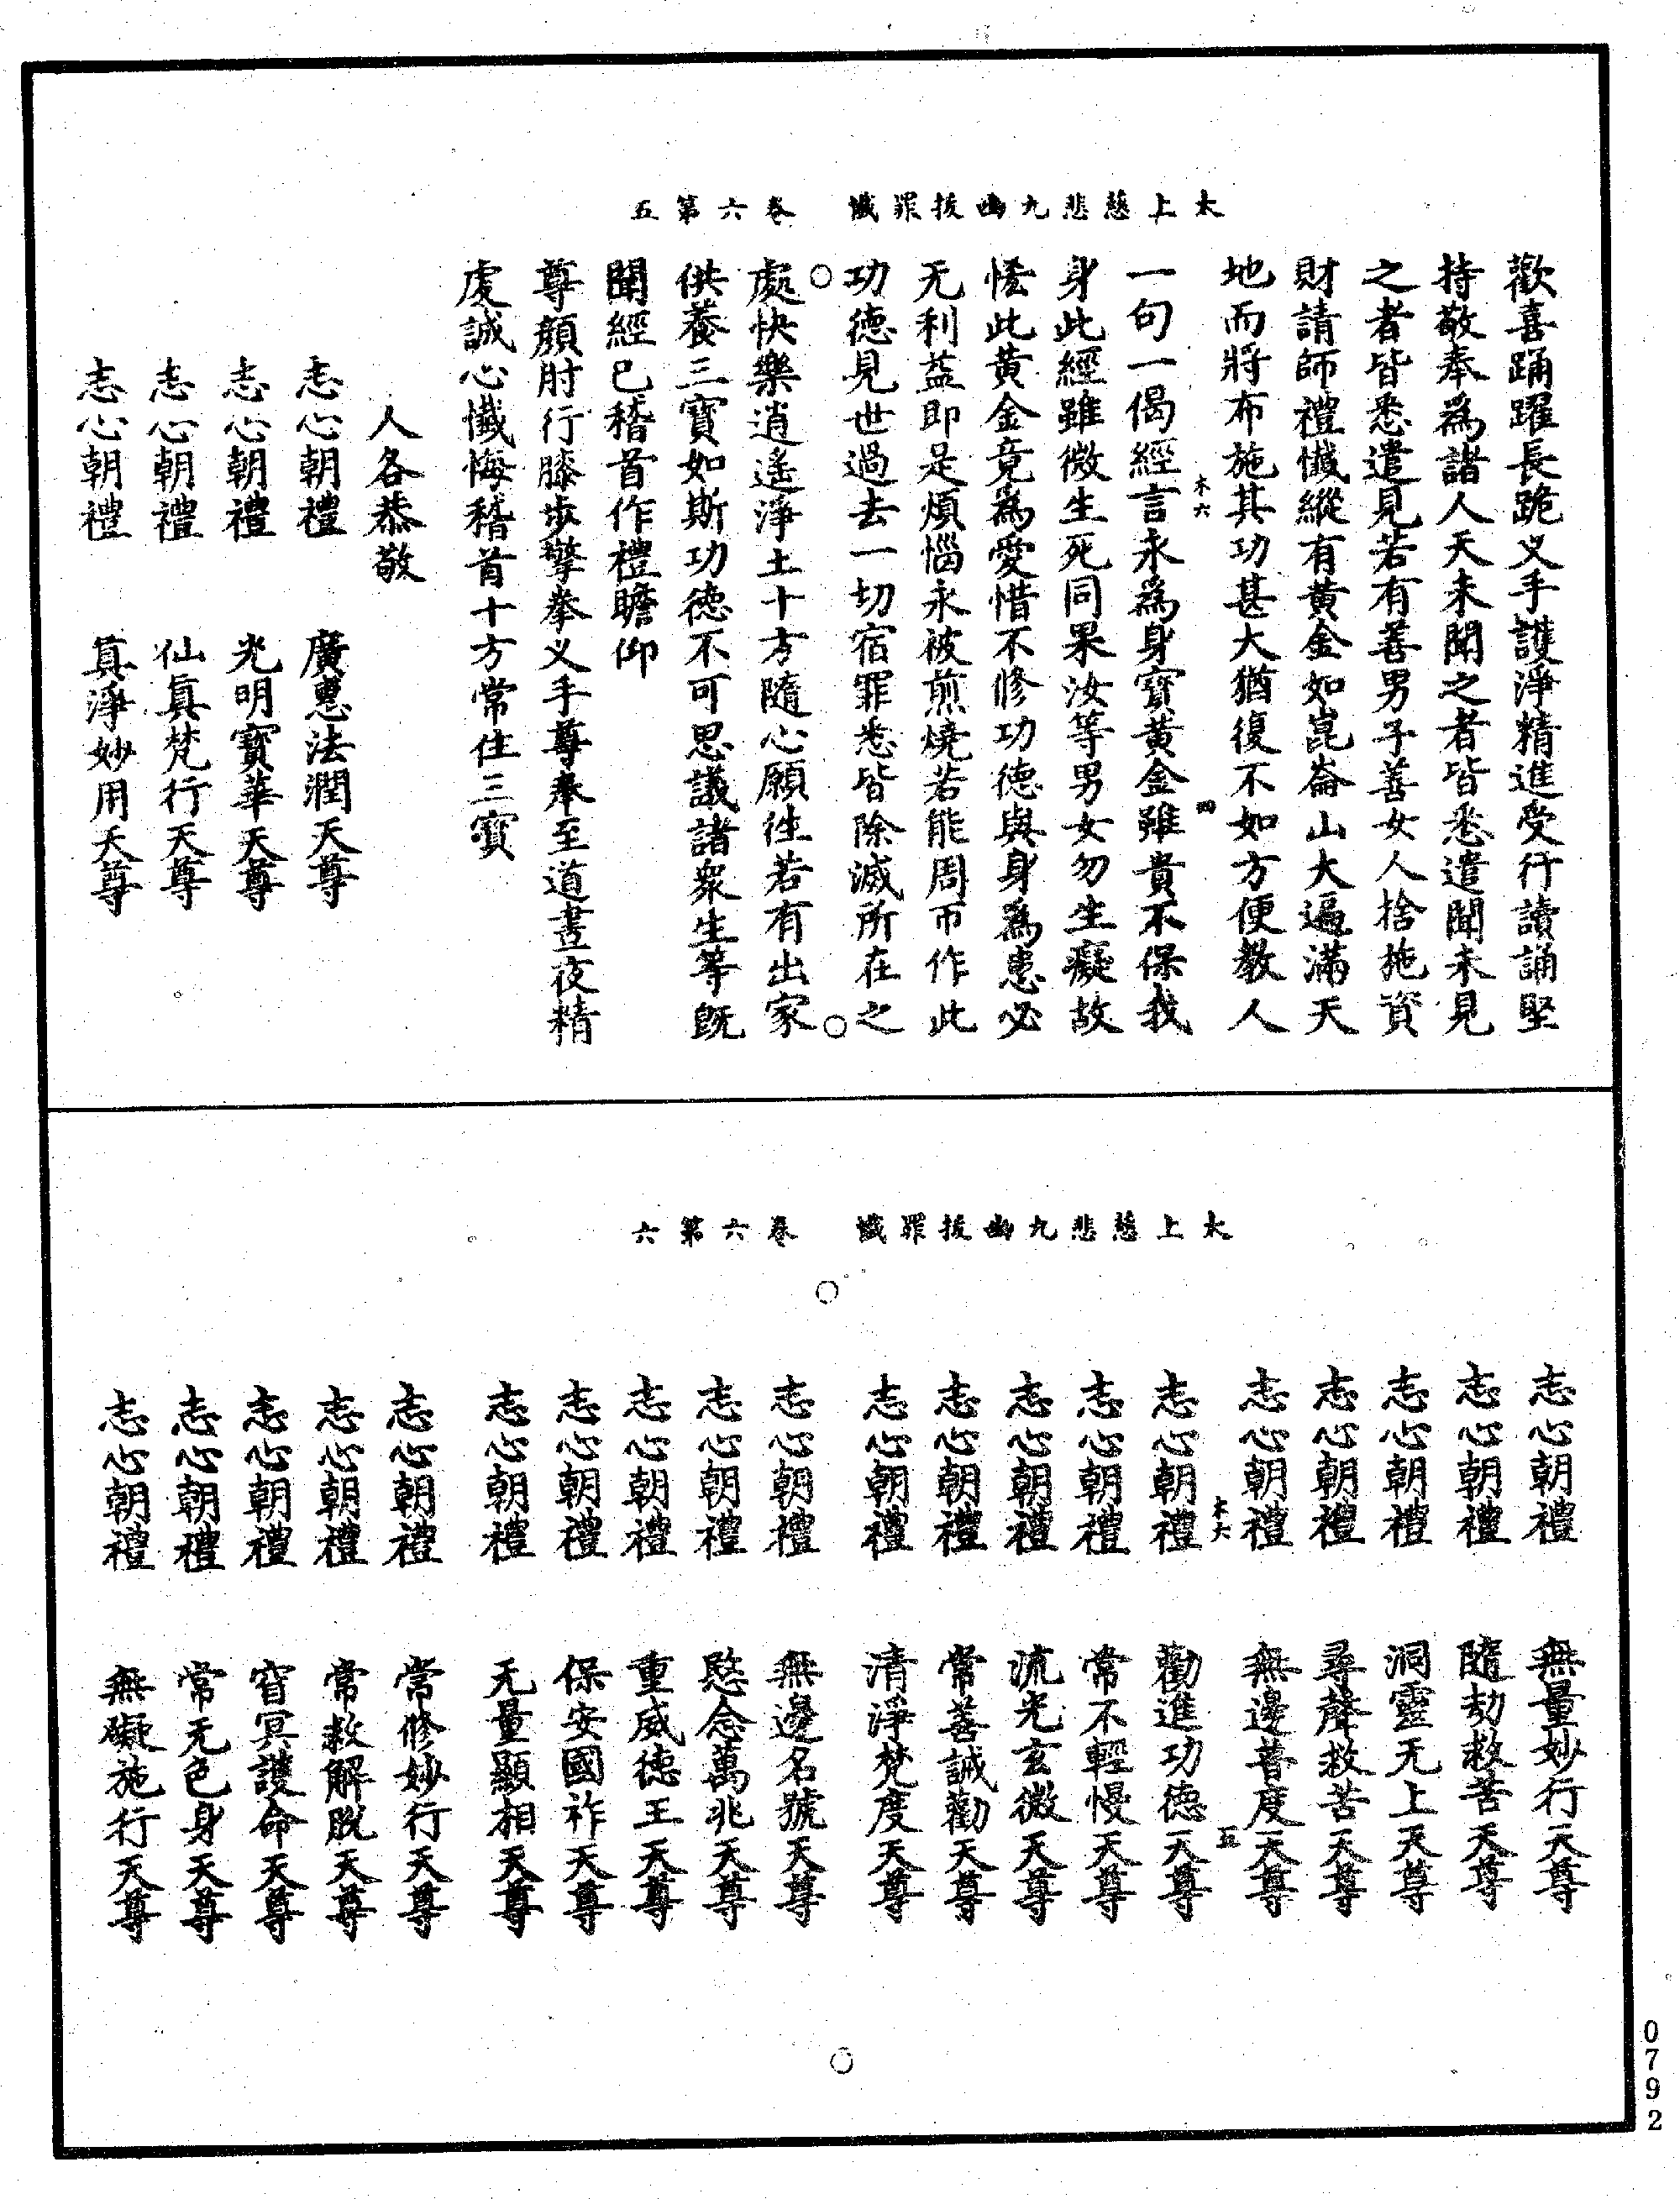 太上慈悲九幽拔罪懺　卷六第五
歡喜踊躍長跪义手護淨精進受行讀誦堅
持敬奉為諸人天未聞之者皆悉遣聞未見
之者皆悉遣見若有善男子善女人捨施資
財請師禮懺縱有黃金如崑崙山大遍滿天
地而將布施其功甚大猶復不如方便教人
木六　四
一句一偈經言永為身寶黃金雖貴不保我
身此經雖微生死同果汝等男女勿生癡故
悋此黃金竟為愛惜不修功德與身為患必
无利益即是煩惱永被煎燒若能周帀作此
功德見世過去一切宿罪悉皆除滅所在之
處快樂逍遙淨土十方隨心願往若有出家
供養三寶如斯功德不可思議諸眾生等既
聞經已稽首作禮瞻仰
尊顏肘行膝步擎拳义手尊奉至道晝夜精
虔誠心懺悔稽首十方常住三寶
人各恭敬
志心朝禮　廣惠法潤天尊
志心朝禮　光明寶華天尊
志心朝禮　仙真梵行天尊
志心朝禮　真淨妙用天尊
太上慈悲九幽拔罪懺　卷六第六
志心朝禮　無量妙行天尊
志心朝禮　隨劫救苦天尊
志心朝禮　洞靈无上天尊
志心朝禮　尋聲救苦天尊
志心朝禮　無邊普度天尊
木六　五
志心朝禮　勸進功德天尊
志心朝禮　常不輕慢天尊
志心朝禮　流光玄微天尊
志心朝禮　常善誡勸天尊
志心朝禮　清淨梵度天尊
志心朝禮　無邊名號天尊
志心朝禮　愍念萬兆天尊
志心朝禮　重威德王天尊
志心朝禮　保安國祚天尊
志心朝禮　无量顯相天尊
志心朝禮　常修妙行天尊
志心朝禮　常救解脫天尊
志心朝禮　窅冥護命天尊
志心朝禮　常无色身天尊
志心朝禮　無礙施行天尊
0792